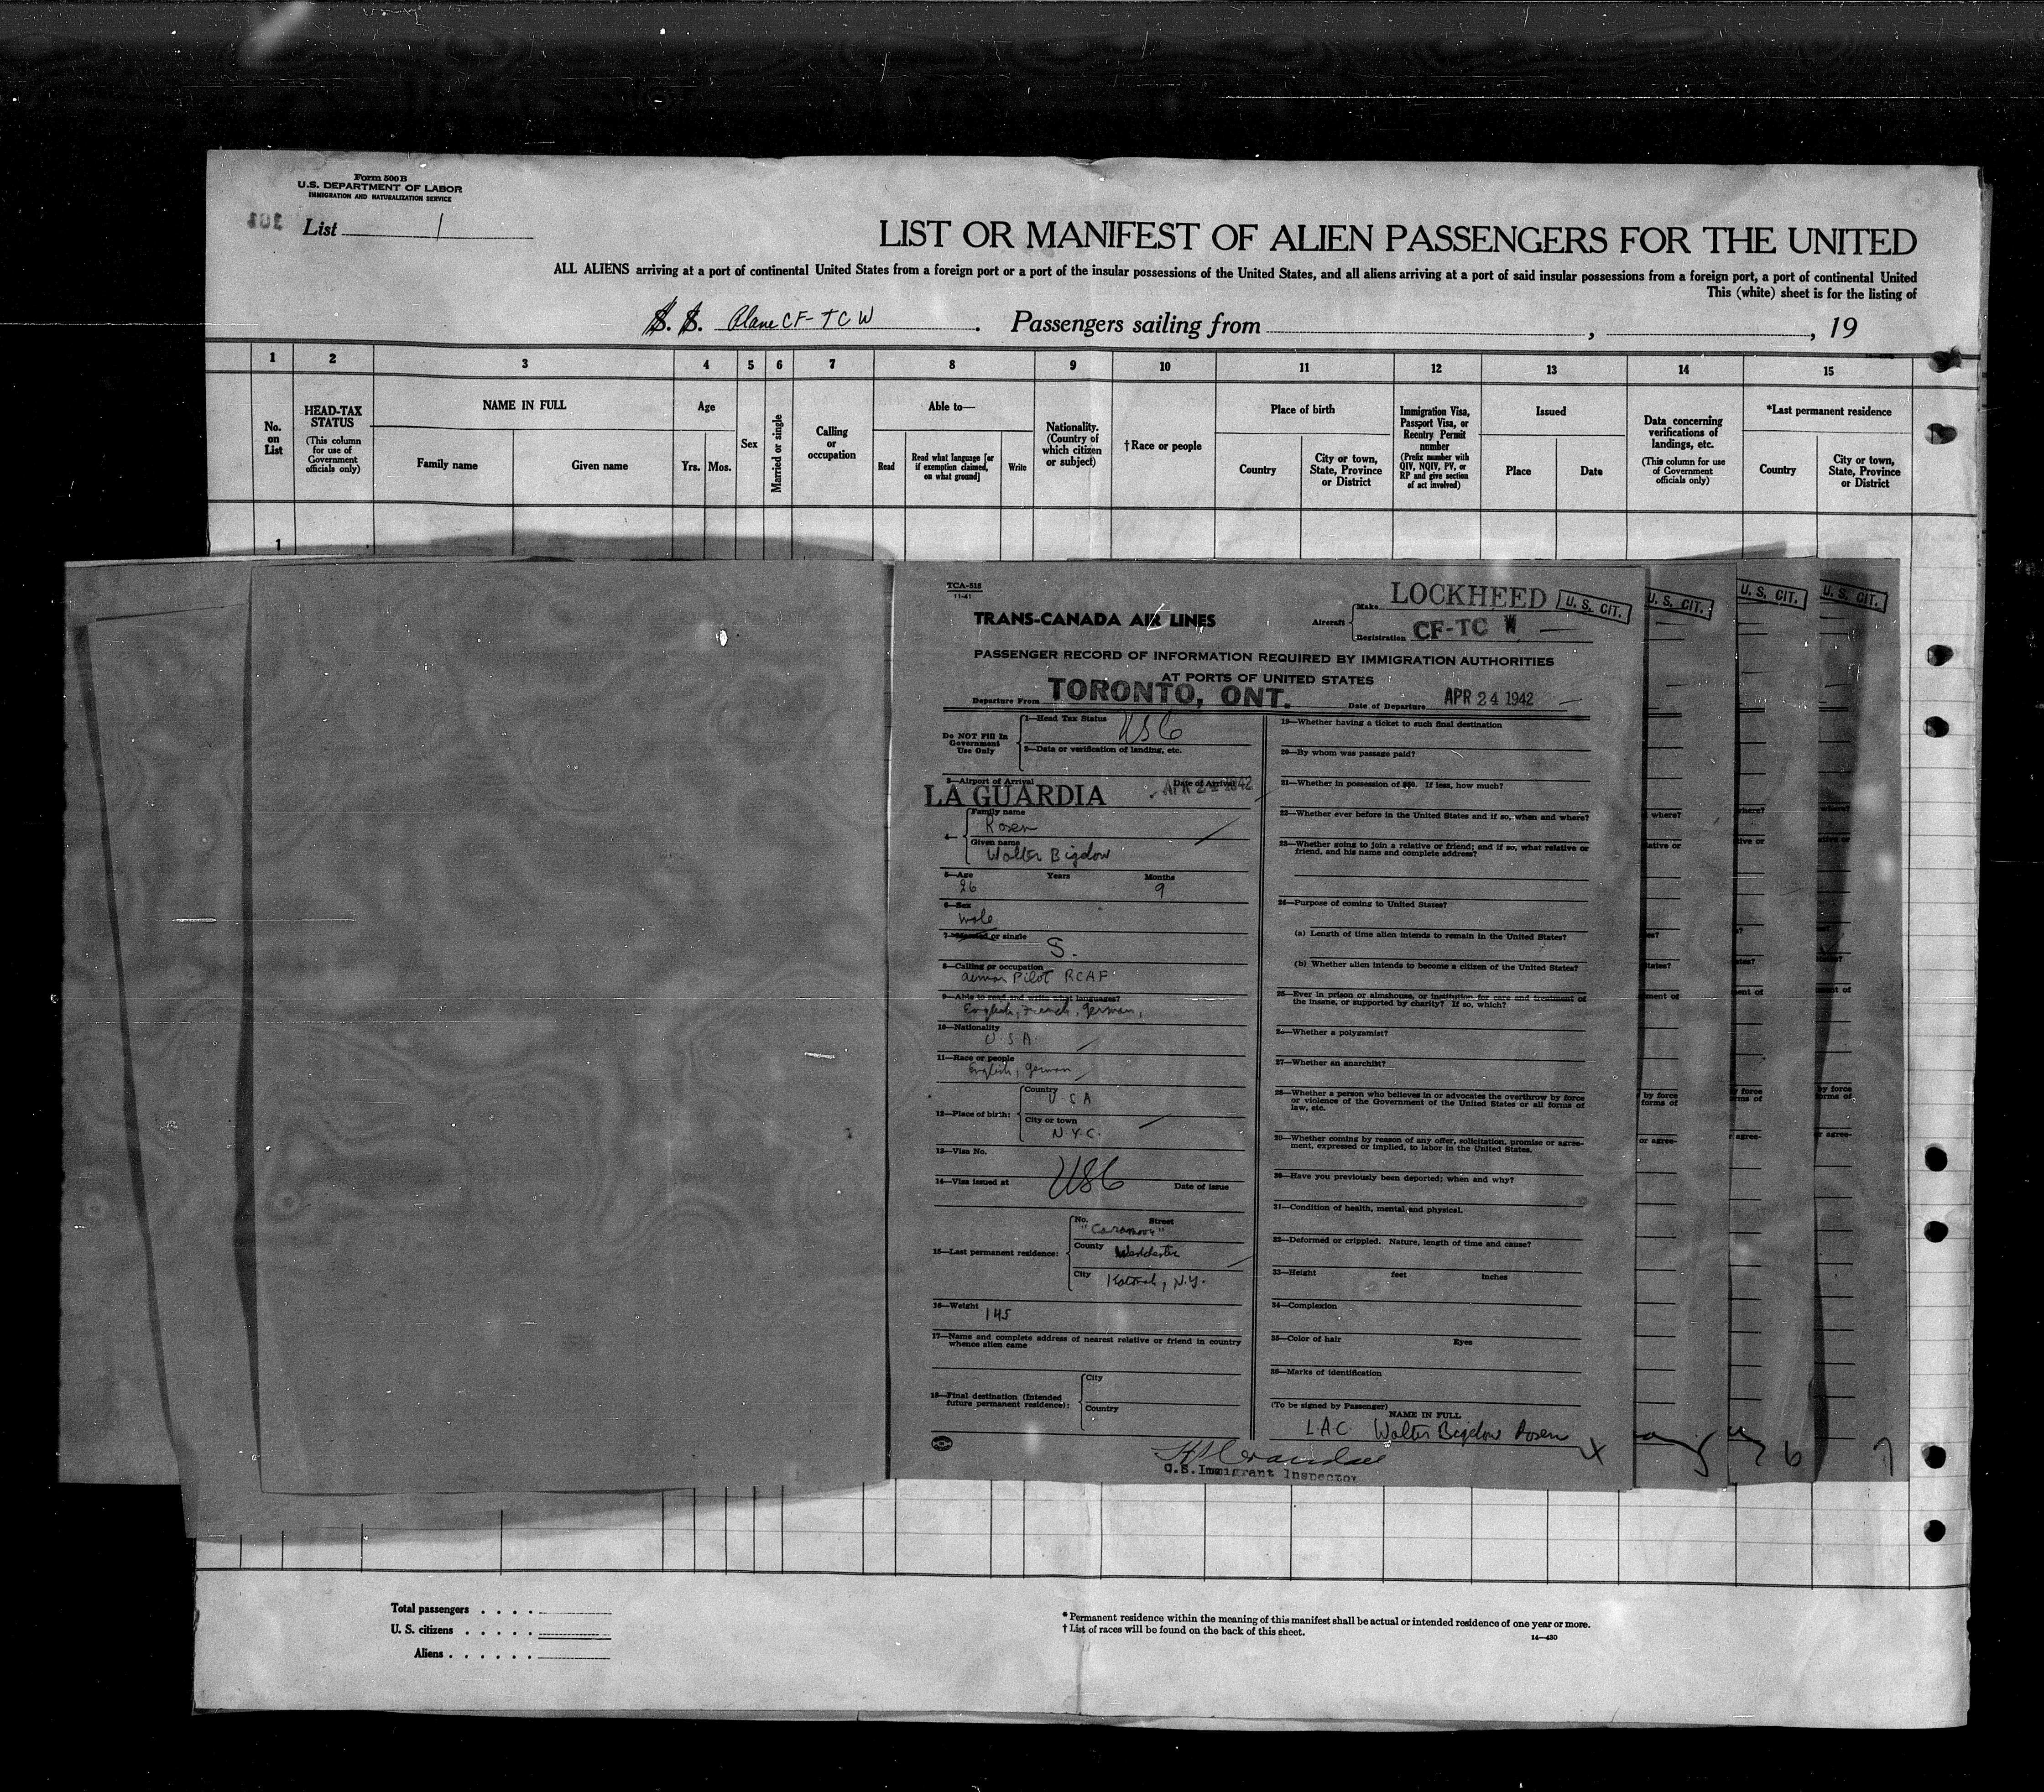 Form 500 B
U.S. DEPARTMENT OF LABOR
IMMIGRATION AND NATURALIZATION SERVICE
List 1
LIST OR MANIFEST OF ALIEN PASSENGERS FOR THE UNITED
ALL ALIENS arriving at a port of continental United States from a foreign port or a port of the insular possessions of the United States, and all aliens arriving at a port of said insular possessions from a foreign port, a port of continental United
This (white) sheet is for the listing of
S. S. Plane CF-TCW. Passengers sailing from , , 19
1 2 3 4 5 6 7 8 9 10 11 12 13 14 15
No. on List
HEAD-TAX STATUS
(This column for use of Government officials only)
NAME IN FULL
Family name
Given name
Age
Yrs. Mos.
Sex
Married or single
Calling or occupation
Able to—
Read
Read what language [or if exemption claimed, on what ground]
Write
Nationality. (Country of which citizen or subject)
†Race or people
Place of birth
Country
City or town, State, Province or District
Immigration Visa, Passport Visa, or Reentry Permit number
(Prefix number with QIV, NQIV, PV, or RP and give section of act involved)
Issued
Place
Date
Data concerning verifications of landings, etc.
(This column for use of Government officials only)
*Last permanent residence
Country
City or town, State, Province or District
1
TCA-518
11-41
TRANS-CANADA AIR LINES
Aircraft
Make LOCKHEED
Registration CF-TC W
U. S. CIT.
U. S. CIT.
U. S. CIT.
U. S. CIT.
PASSENGER RECORD OF INFORMATION REQUIRED BY IMMIGRATION AUTHORITIES
AT PORTS OF UNITED STATES
Departure From TORONTO, ONT. Date of Departure APR 24 1942
Do NOT Fill In Government Use Only
1—Head Tax Status USC
2—Data or verification of landing, etc.
3—Airport of Arrival Date of Arrival
LA GUARDIA APR 24 1942
4—
Family name
Rosen
Given name
Walter Bigelow
5—Age Years Months
26 9
6—Sex
Male
7—Married or single S.
8—Calling or occupation
Airman Pilot RCAF
9—Able to read and write what languages?
English, French, German,
10—Nationality
U.S.A.
11—Race or people
English, German
12—Place of birth:
Country
USA
City or town
N.Y.C.
13—Visa No.
14—Visa issued at USC Date of issue
15—Last permanent residence:
No. Street
"Caramoor"
County Westchester
City Katonah, N.Y.
16—Weight 145
17—Name and complete address of nearest relative or friend in country
whence alien came
18—Final destination (Intended
future permanent residence):
City
Country
19—Whether having a ticket to such final destination
20—By whom was passage paid?
21—Whether in possession of $50. If less, how much?
22—Whether ever before in the United States and if so, when and where?
23—Whether going to join a relative or friend; and if so, what relative or
friend, and his name and complete address?
24—Purpose of coming to United States?
(a) Length of time alien intends to remain in the United States?
(b) Whether alien intends to become a citizen of the United States?
25—Ever in prison or almshouse, or institution for care and treatment of
the insane, or supported by charity? If so, which?
26—Whether a polygamist?
27—Whether an anarchist?
28—Whether a person who believes in or advocates the overthrow by force
or violence of the Government of the United States or all forms of
law, etc.
29—Whether coming by reason of any offer, solicitation, promise or agree-
ment, expressed or implied, to labor in the United States.
30—Have you previously been deported; when and why?
31—Condition of health, mental and physical.
32—Deformed or crippled. Nature, length of time and cause?
33—Height feet inches
34—Complexion
35—Color of hair Eyes
36—Marks of identification
(To be signed by Passenger)
NAME IN FULL
L.A.C. Walter Bigelow Rosen
4 5 6 7
U.S. Immigrant Inspector
Total passengers
U. S. citizens
Aliens
* Permanent residence within the meaning of this manifest shall be actual or intended residence of one year or more.
† List of races will be found on the back of this sheet.
14—430